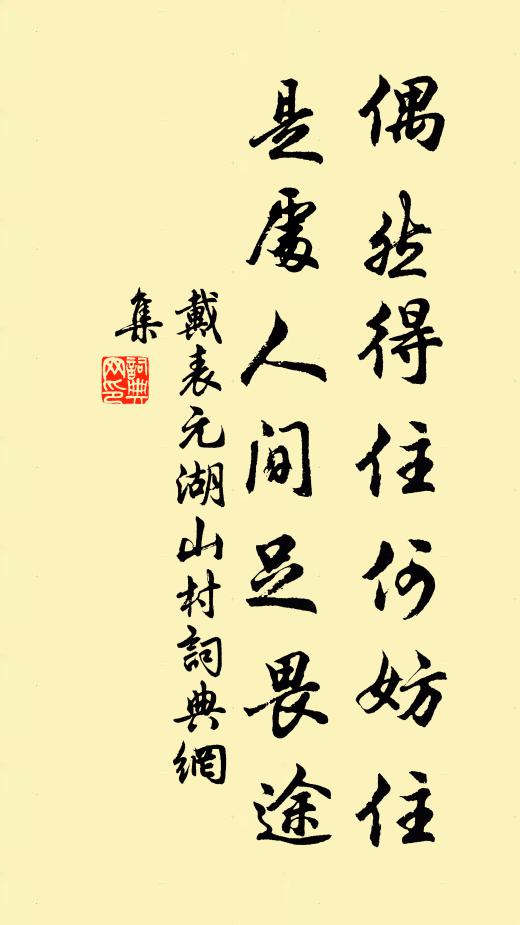 偶然得住何妨住
是處人間足畏途
戴表元湖山村詞典網
集
詞典網印